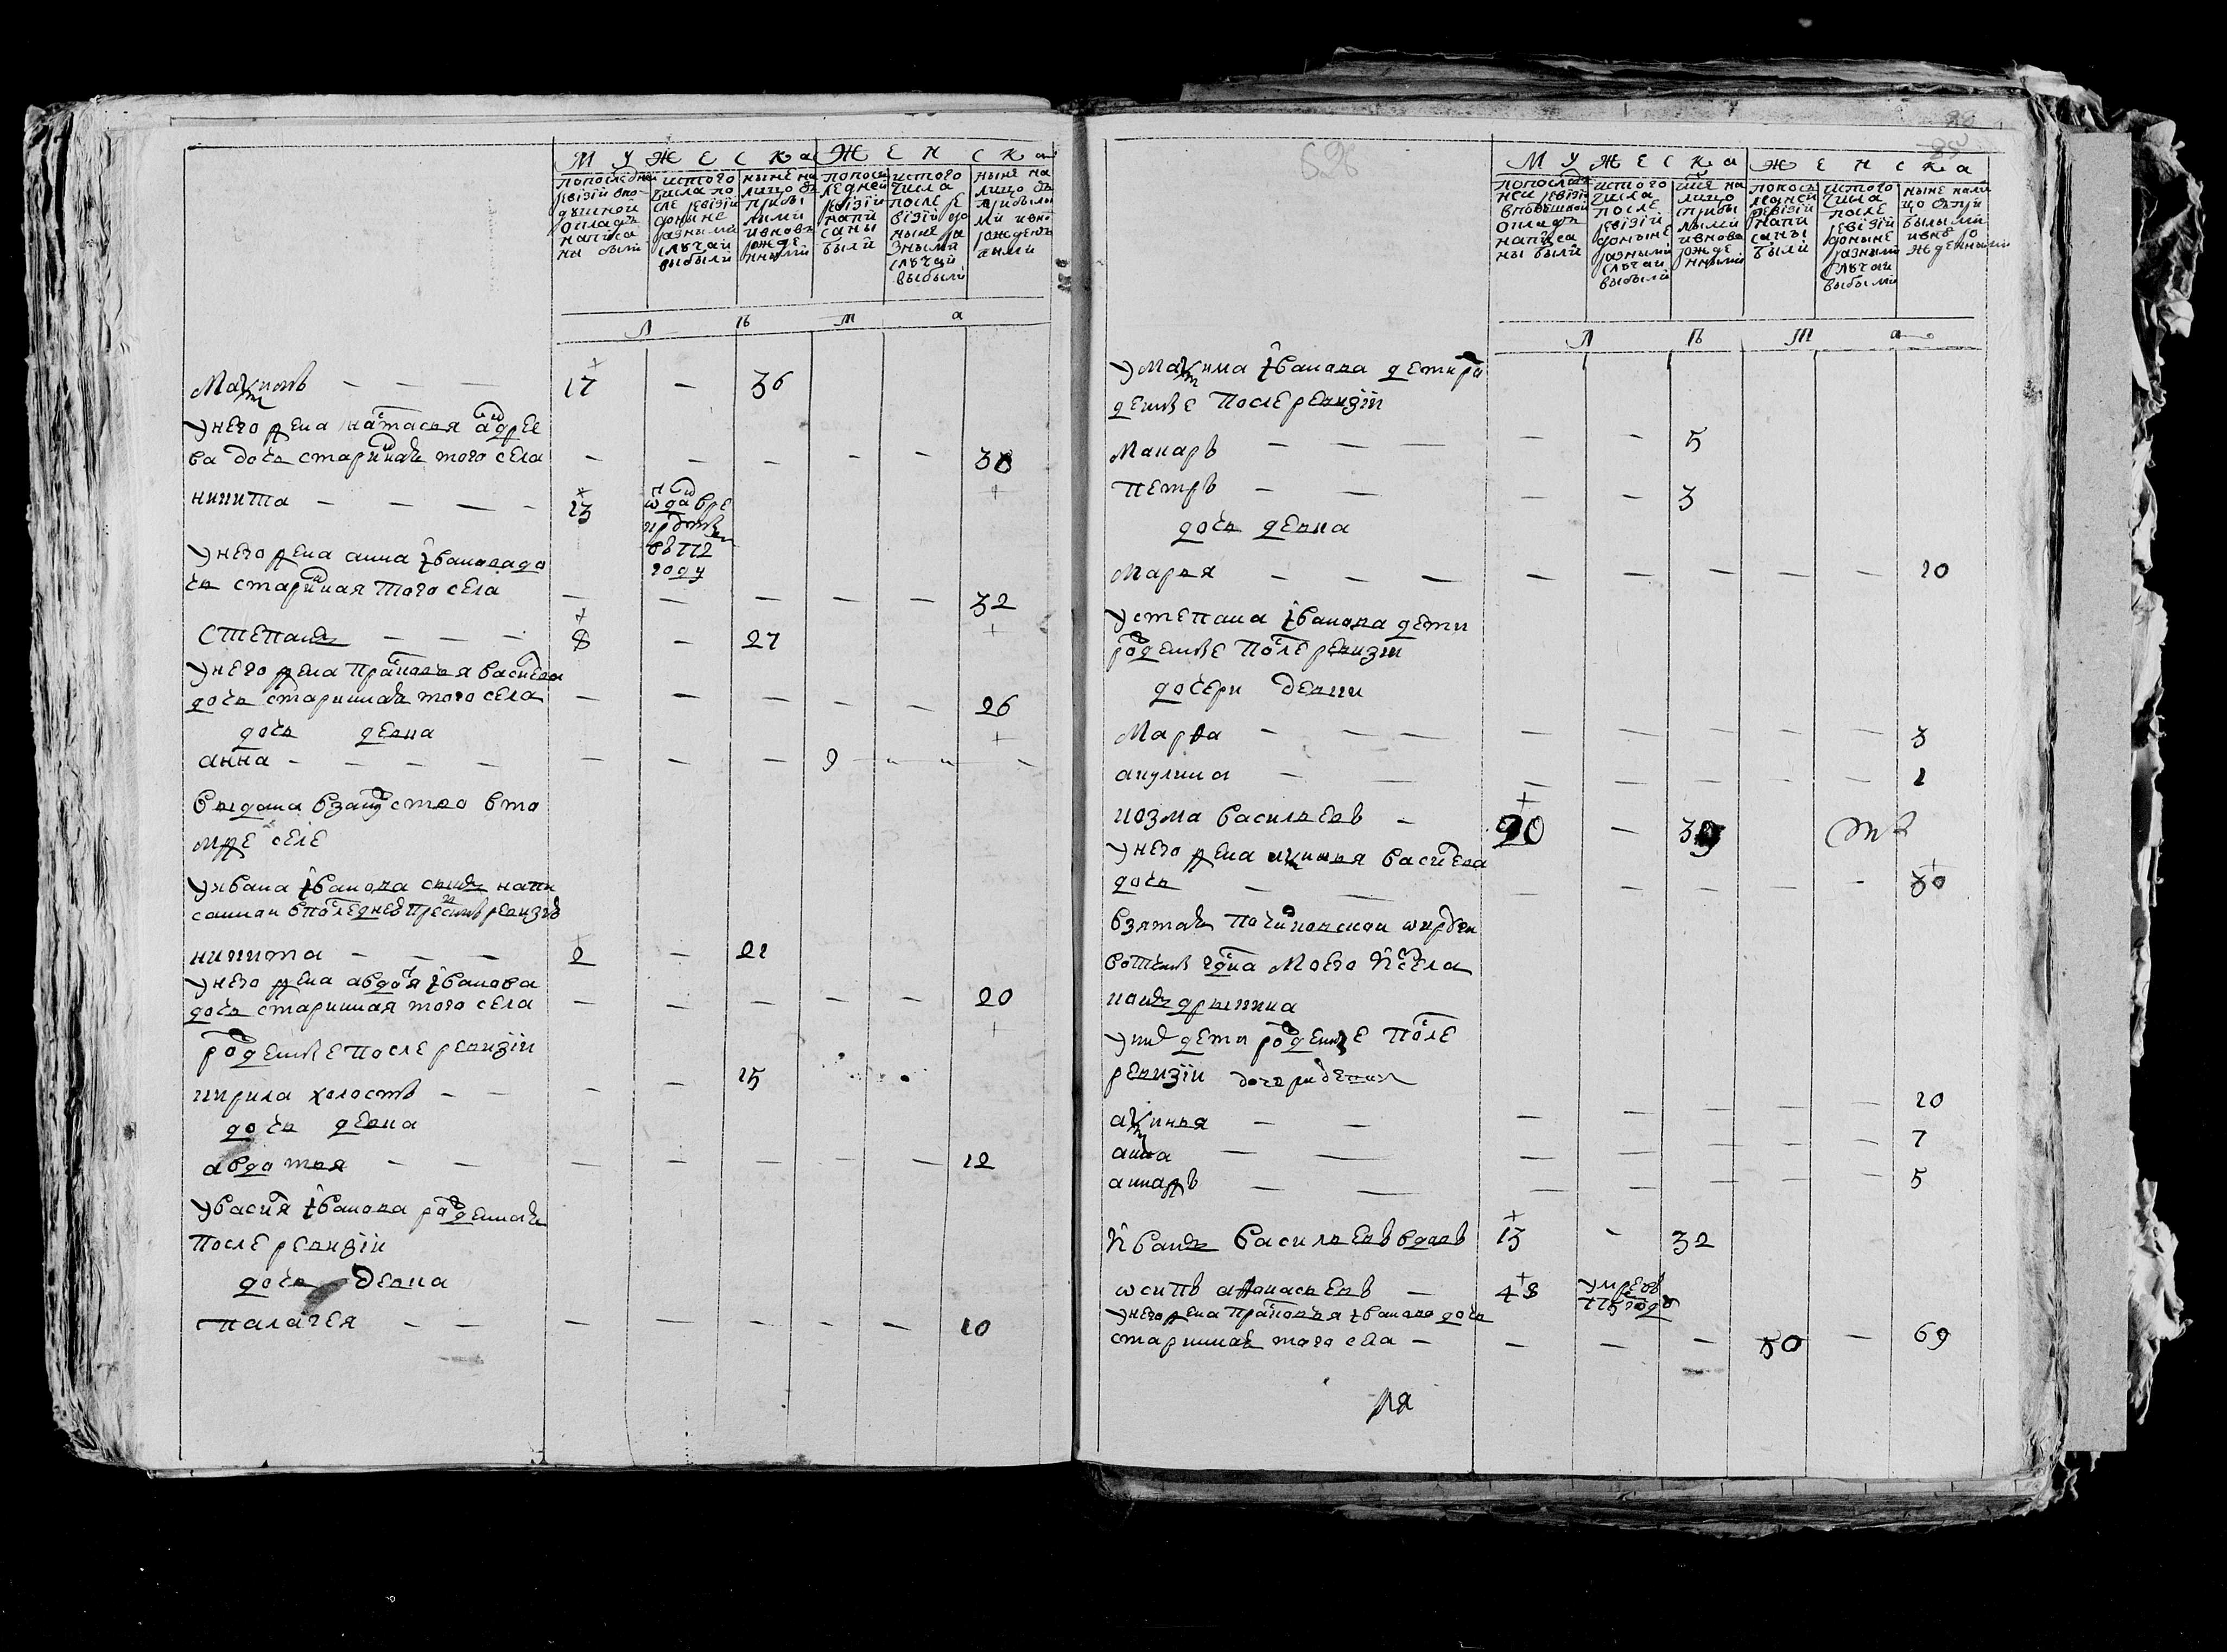 мужеска женска
попоследней ревизии вподушной оклад написаны были
истого числа после ревизии доныне разными случаи выбыли
ныне налицо с прибылыми ивновь рожденными
попоследней ревизии написаны были
истого числа после ревизии доныне разными случаи выбыли
ныне налицо с прибылыми ивновь рожденными
лѣта
Маѯимъ — — — 17 — 36
унего жена настасья адрее
ва дочь стариная того села — — — — — 30
никита — — — — 23
въ 772
году
унего жена анна Ивановадо
чь стариная того села — — — — — 32
степанъ — — — 8 — 27
унего жена прасковья василева
дочь старинная того села — — — — — 26
дочь девка
анна — — — — — — — 9 — — —
выдана взамужство вто
мже селе
уивана Иванова сынъ напи
санной впоследней пред симъ ревизіи
никита — — — 2 — 21
унего жена авдотя Иванова
дочь старинная того села — — — — — 20
рожденные после ревизіи
кирила холостъ — — — — 15
дочь девка
авдотья — — — — — — — 12
Увасиля Иванова рожденная
после ревизіи
дочь девка
палагея — — — — — — — 10
мужеска женска
попоследней ревизии вподушной оклад написаны были
истого числа после ревизии доныне разными случаи выбыли
ныне налицо с прибылыми ивновь рожденными
попоследней ревизии написаны были
истого числа после ревизии доныне разными случаи выбыли
ныне налицо с прибылыми ивнов рожденными
лѣта
умаѯима Иванова дети ро
денные после ревизіи
Макаръ — — — — — 5
петръ — — — — 3
дочь девка
Марья — — — — — — — — 10
устепана Иванова дети
роденные после ревизіи
дочери девки
Марѳа — — — — — — — — 3
акулина — — — — — — — 1
козма васильевъ — 20 — 39
унего жена аѯинья василева
дочь — — — — — — — 30
взятая
вотчины гдна моего Исела
унихъ дети роденные после
ревизіи дочери девки
аѯинья — — — — — — — 10
анна — — — — — — — 7
— — — — — — — 5
Иванъ васильевъ вдовъ 13 — 32
ѡсипъ аѳонасьевъ — 48 умре въ
году
унего жена прасковья Иванова дочь
старинная того села — — — — 50 — 69